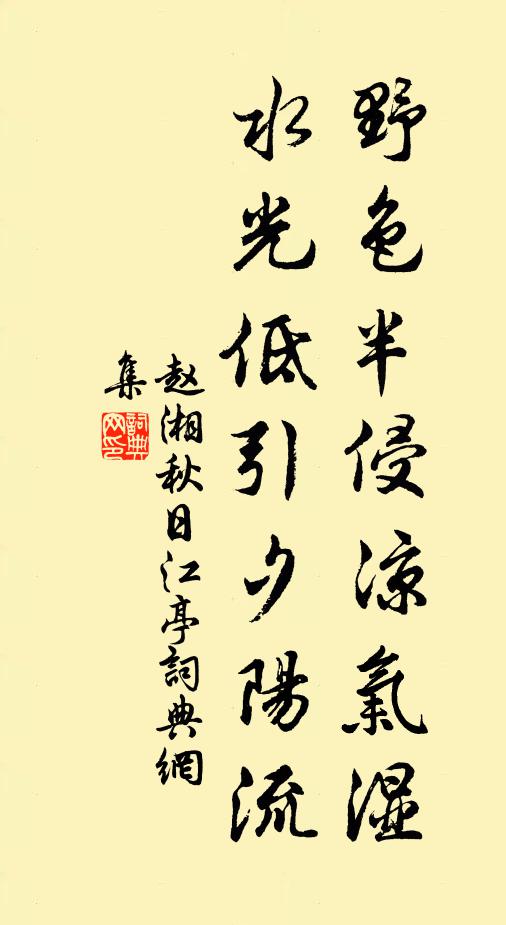 野色半侵涼氣濕
水光低引夕陽流
赵湘秋日江亭詞典網
集
詞典
网印